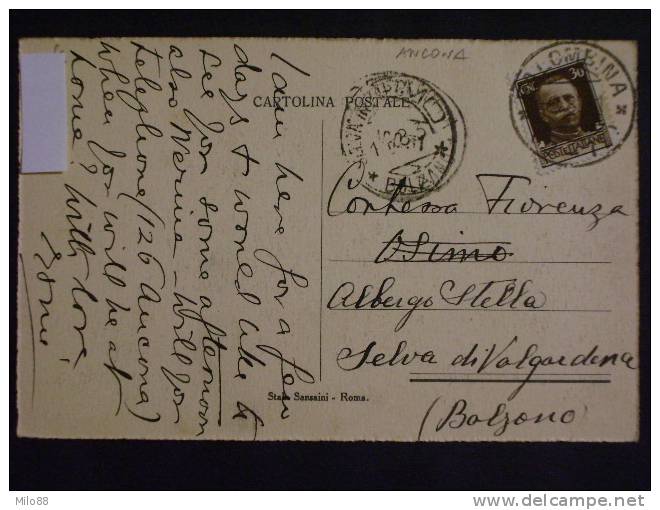 I am here for a few
days & would like to
see you some afternoon
also Nerina - Will you
telephone (126 Ancona)
when you will be at
home? With love
ANCONA
CARTOLINA POSTALE
PALOMBINA
30
POSTE ITALIANE
Contessa Fiorenza
Osimo
Albergo Stella
Selva di Valgardena
(Bolzano)
Stab. Sansaini - Roma.
Milo88
delcampe.net